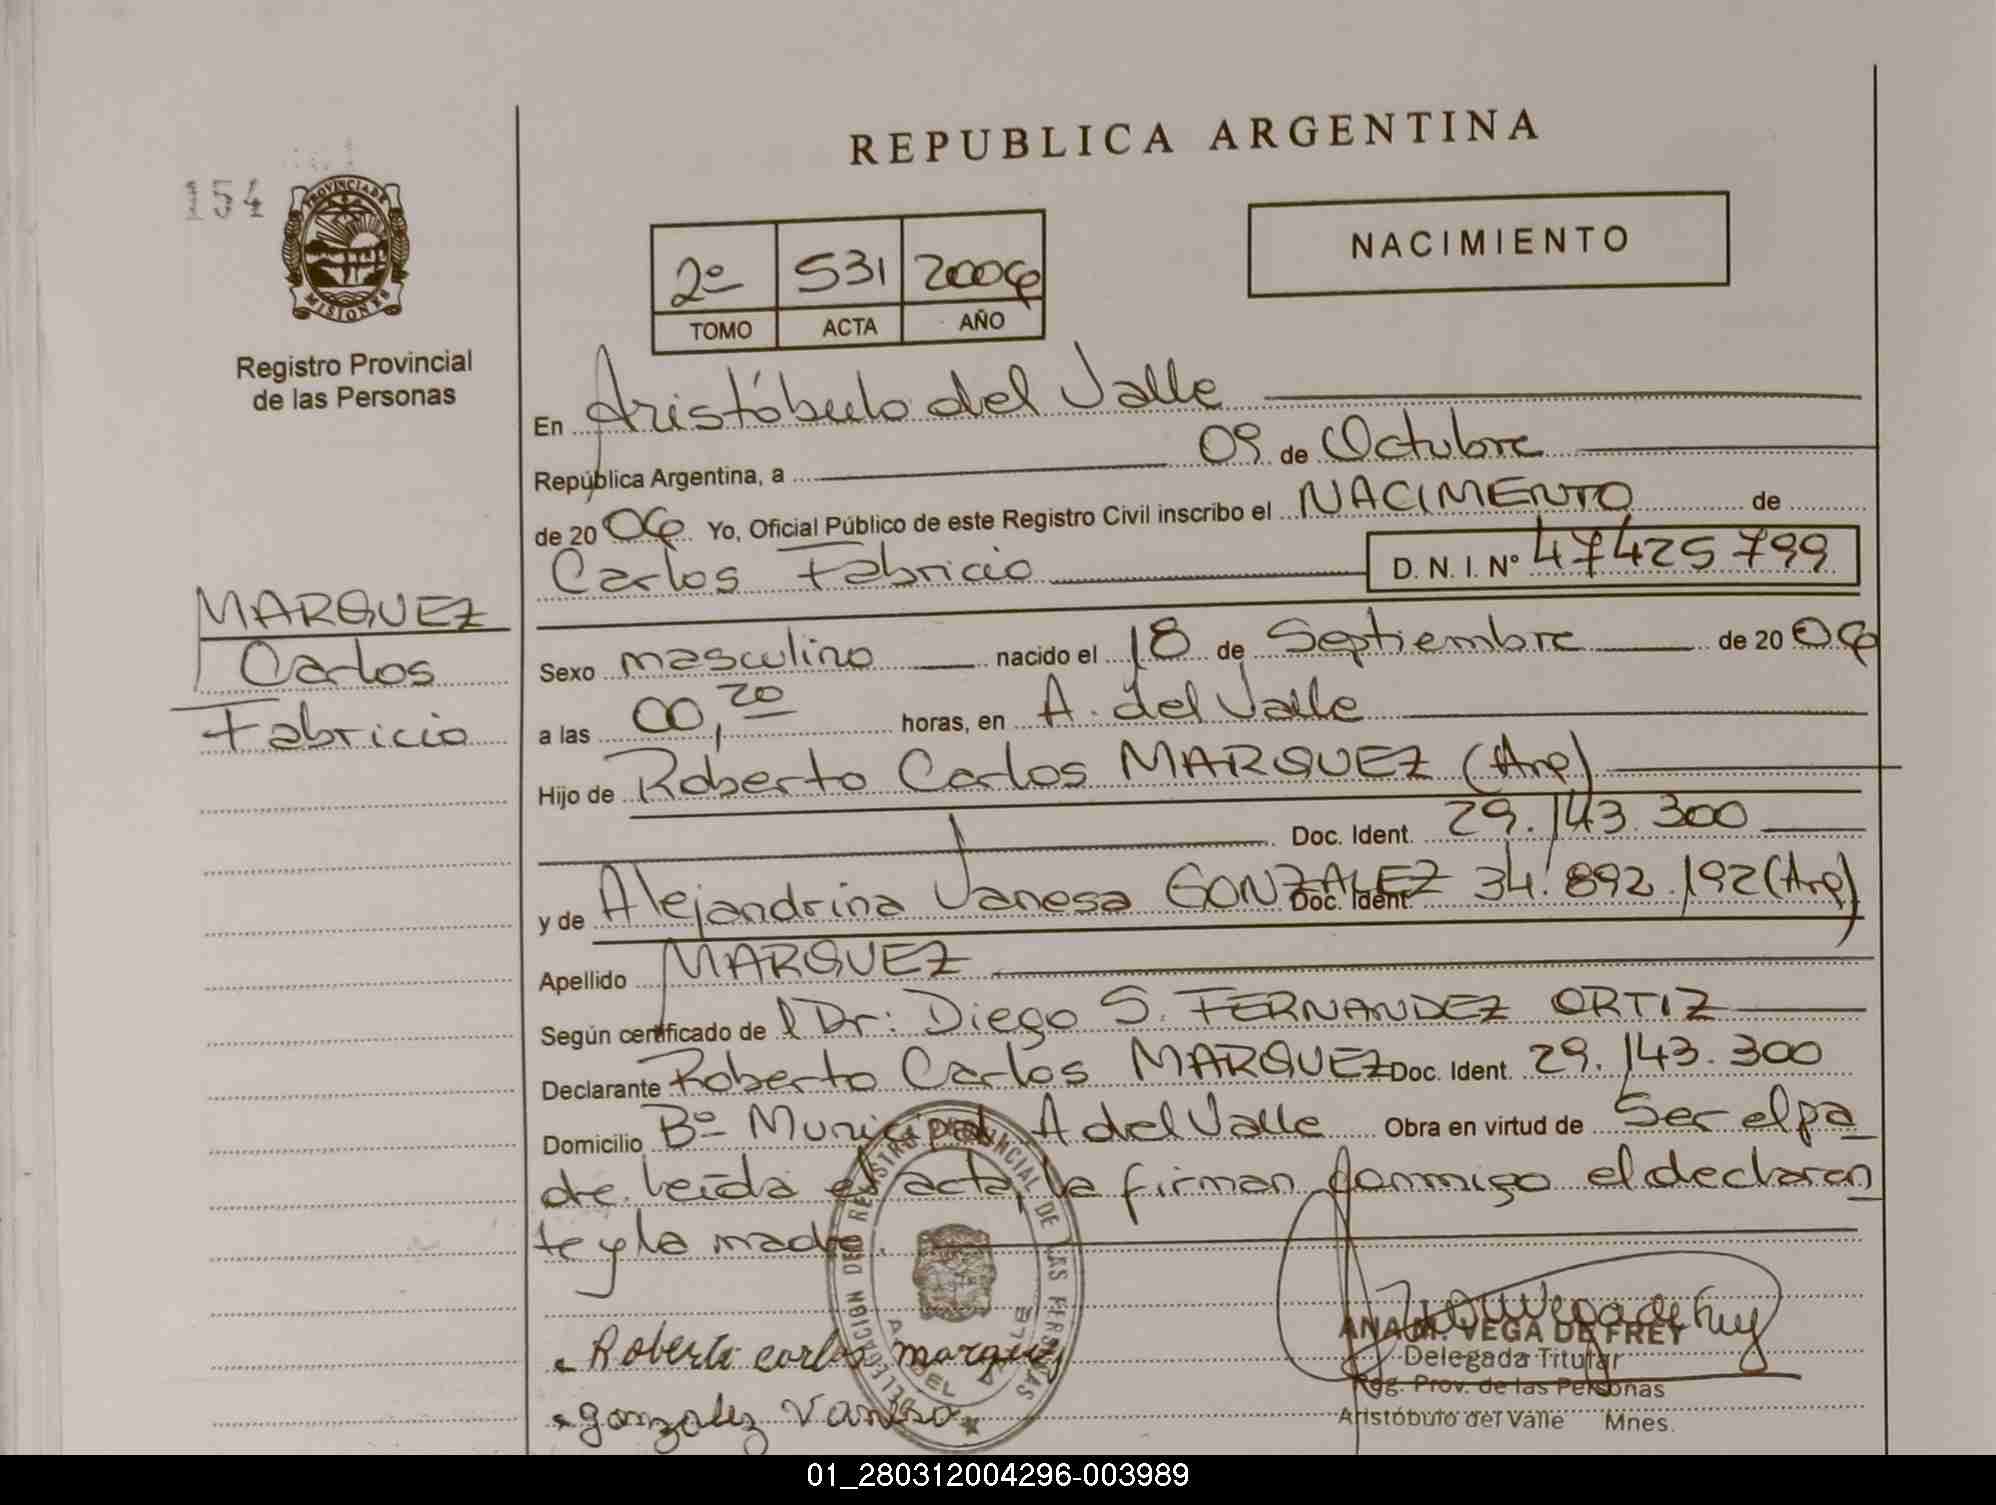 REPUBLICA ARGENTINA
154
PROVINCIA DE
MISIONES
Registro Provincial
de las Personas
NACIMIENTO
2º 531 2006
TOMO ACTA AÑO
En Aristóbulo del Valle
República Argentina, a 09 de Octubre
de 2006 Yo, Oficial Público de este Registro Civil inscribo el NACIMENTO de
Carlos Fabricio D. N. I. Nº 47425799
MARQUEZ
Carlos
Fabricio
Sexo masculino nacido el 18 de Septiembre de 2006
a las 00,20 horas, en A. del Valle
Hijo de Roberto Carlos MARQUEZ (Arg)
Doc. Ident. 29.143.300
y de Alejandrina Vanesa GONZALEZ Doc. Ident. 34.892.192 (Arg)
Apellido MARQUEZ
Según certificado de l Dr: Diego S. FERNANDEZ ORTIZ
Declarante Roberto Carlos MARQUEZ Doc. Ident. 29.143.300
Domicilio Bº Municipal A del Valle Obra en virtud de Ser el pa
dre. leída el acta, la firman conmigo el declaran
te y la madre.
DELEGACION DEL REGISTRO PROVINCIAL DE LAS PERSONAS
A. DEL VALLE
Roberto carlos marquez
gonzalez Vanesa
ANA M. VEGA DE FREY
Delegada Titular
Reg. Prov. de las Personas
Aristóbulo del Valle Mnes.
01_280312004296-003989